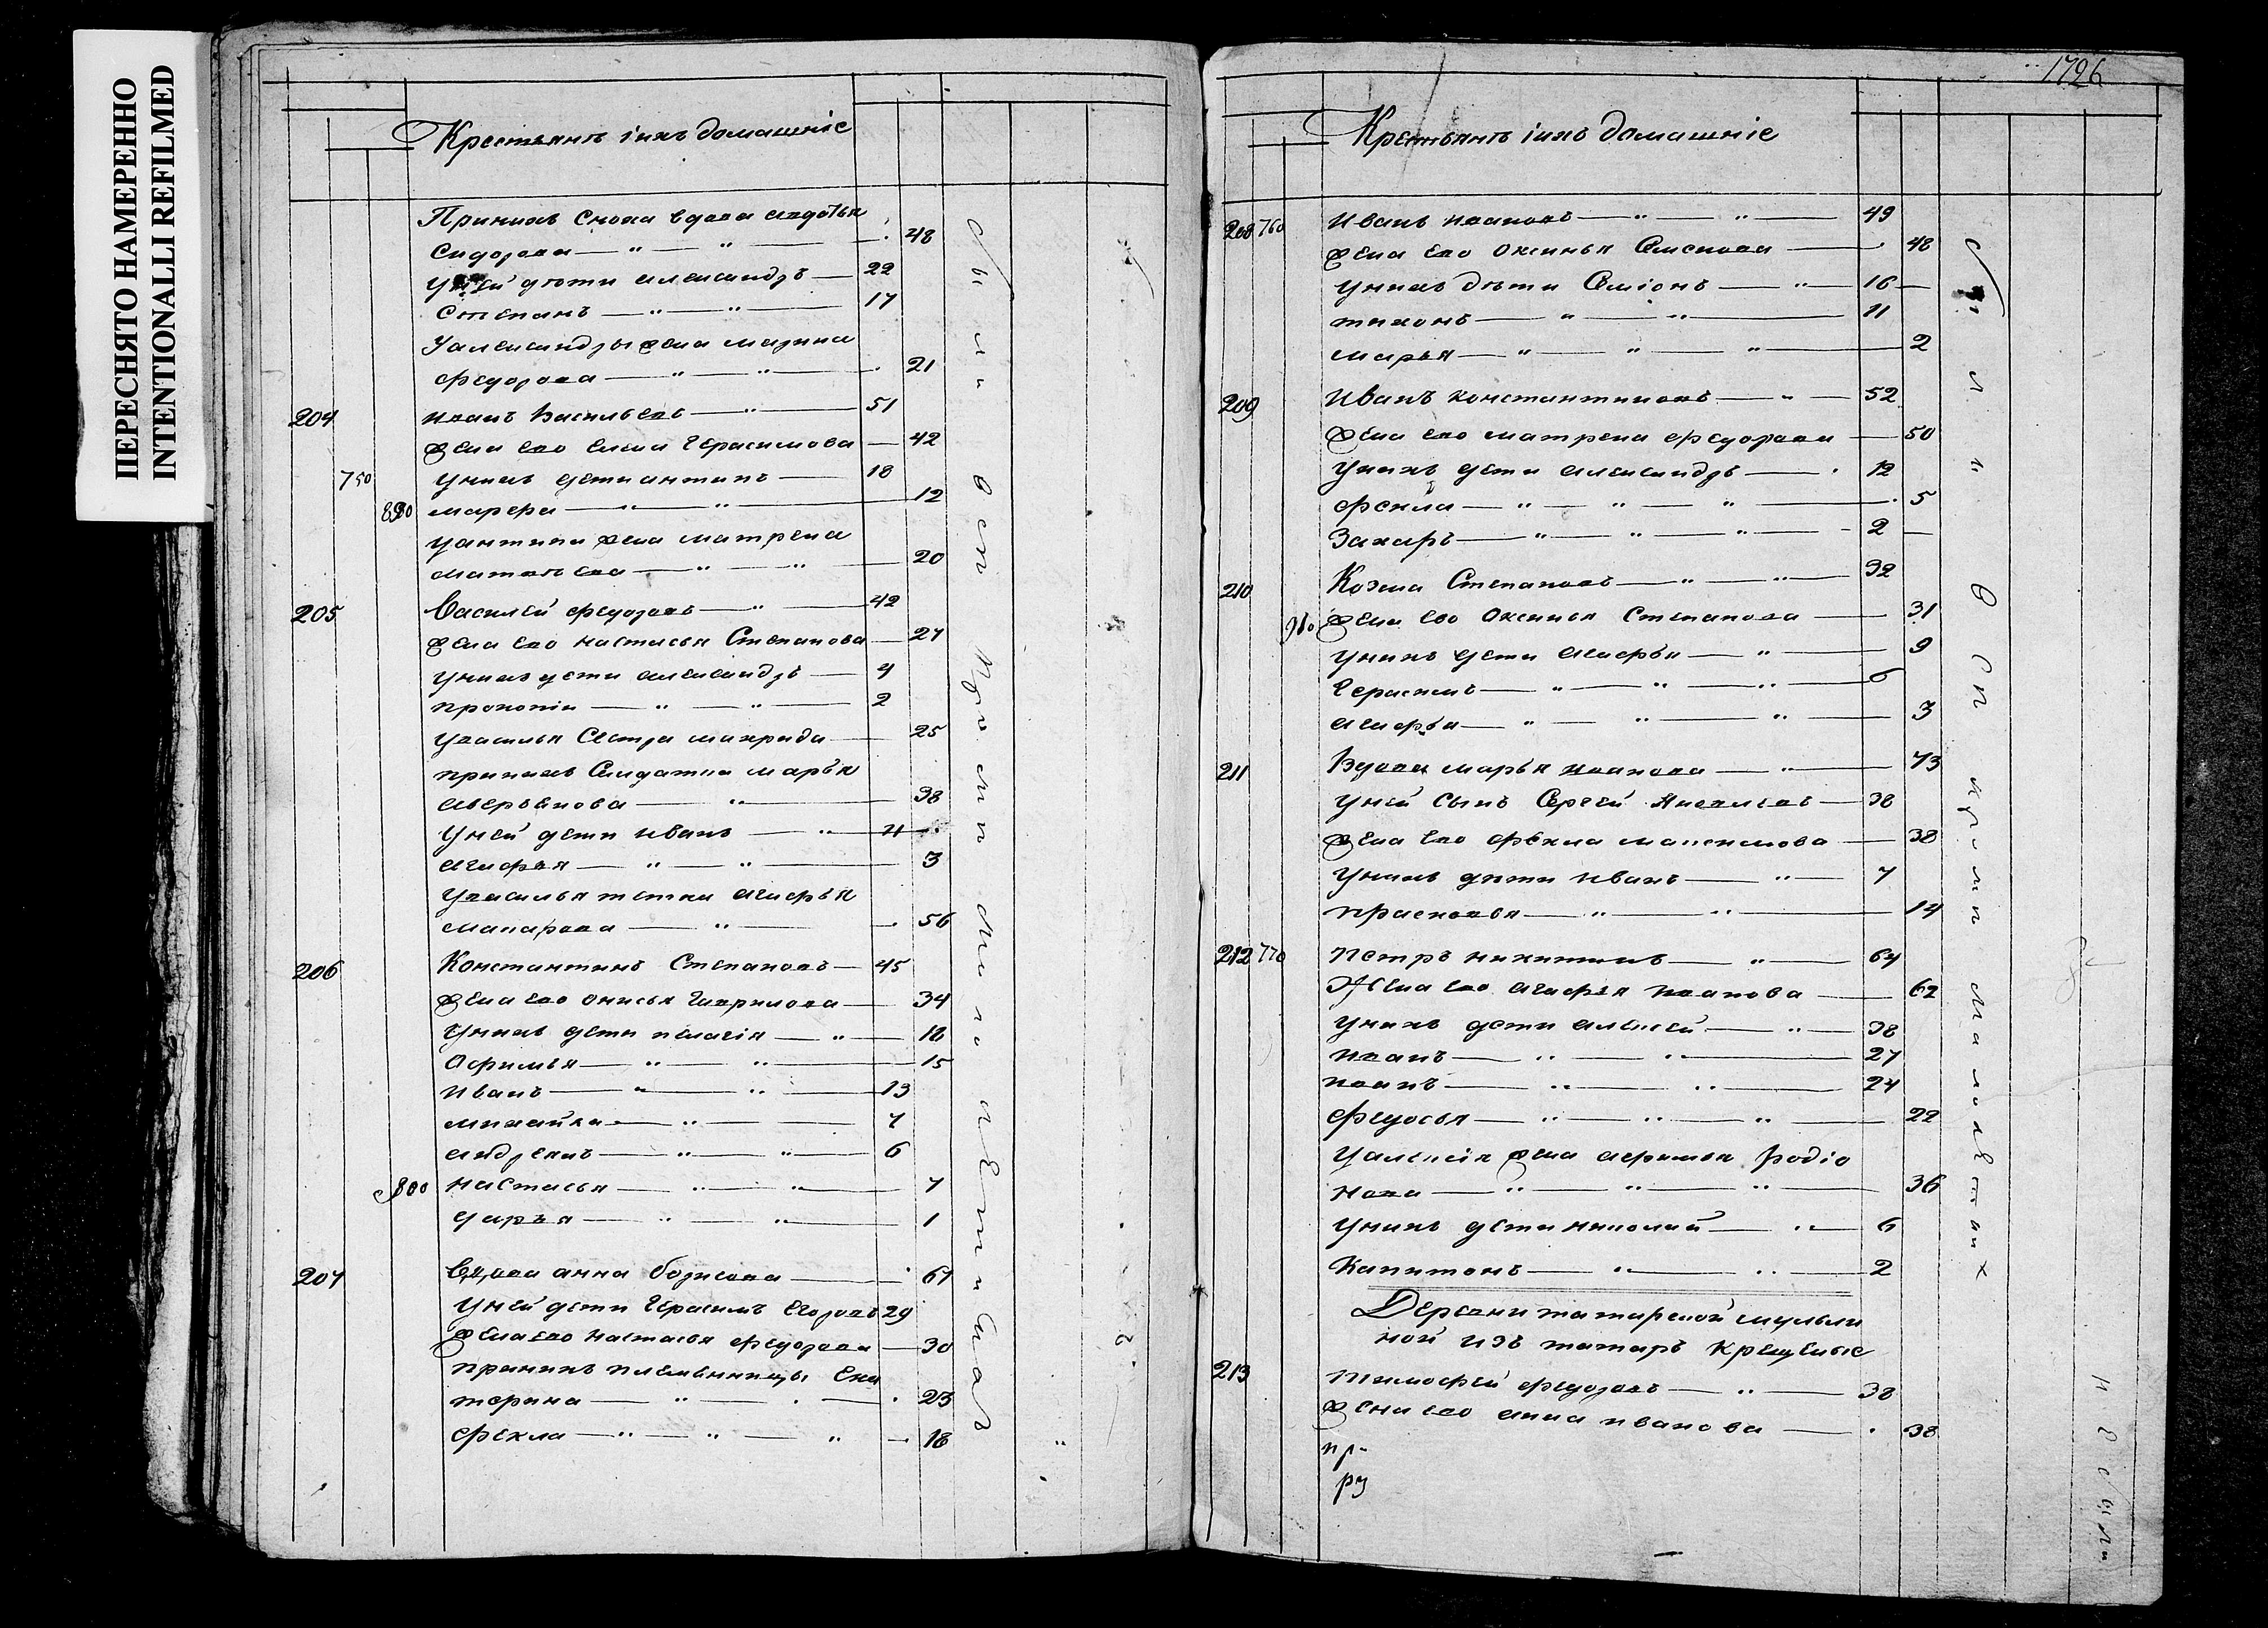 ПЕРЕСНЯТО НАМЕРЕННО
INTENTIONALLI REFILMED
Крестьянъ iихъ домашнiе
Принихъ сноха вдова авдотья
Сидорова — 48
уней дѣти александръ — 22
Степанъ — 17
Уалександры жена марина
федорова — 21
204 иванъ Васильевъ — 51
жена ево елена Герасимова — 42
750 унихъ дети антипъ — 18
890 марфа — 12
уантипа жена матрена
матвѣева — 20
205 Василей федоровъ — 42
жена ево настасья Степанова — 27
унихъ дети александръ — 4
прокопiи — 2
увасилья Сестра макрида — 25
принихъ Салдатка марья
аверьянова — 38
уней дети иванъ — 11
агафья — 3
увасилья тетка агафья
макарова — 56
206 Константинъ Степановъ — 45
жена ево анисья Гаврилова — 34
унихъ дети пелагiя — 18
Афимья — 15
иванъ — 13
михайла — 7
андреянъ — 6
900 настасья — 7
дарья — 1
207 Вдова анна борисова — 67
уней дети Герасимъ Егоровъ 29
жена ево настасья федорова — 30
принихъ племянницы Ека
терина — 23
фекла — 18
1726
Крестьянъ iихъ домашнiе
208 760 иванъ ивановъ — 49
жена ево оксинья Семенова — 48
унихъ дѣти Семiонъ — 16
тихонъ — 11
марья — 2
209 иванъ константиновъ — 52
жена ево матрена федорова — 50
унихъ дети александръ — 12
фекла — 5
Захаръ — 2
210 Козма Степановъ — 32
910 жена ево Оксинья Степанова — 31
унихъ дети агафья — 9
Герасимъ — 6
агафья — 3
211 Вдова марья иванова — 73
уней сынъ Сергей яковлевъ — 38
жена ево фекла максимова — 38
унихъ дѣти иванъ — 7
прасковья — 14
212 770 Петръ никитинъ — 64
Жена ево агафья иванова — 62
унихъ дети алексей — 38
иванъ — 27
иванъ — 24
федосья — 22
уалексiя жена афимья Родiо
нова — 36
унихъ дети николай — 6
Капитонъ — 2
Деревни татарской
ной изъ татаръ крещеные
213 тимофей федоровъ — 38
жена ево анна иванова — 38